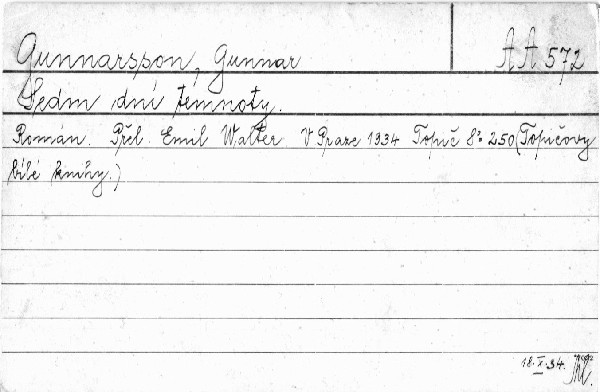 Gunnarsson, Gunnar AA 572
Sedm dní temnoty.
Román. Přel. Emil Walter V Praze 1934 Topič 8° 250 (Topičovy
bílé knihy.)
18.X.34.